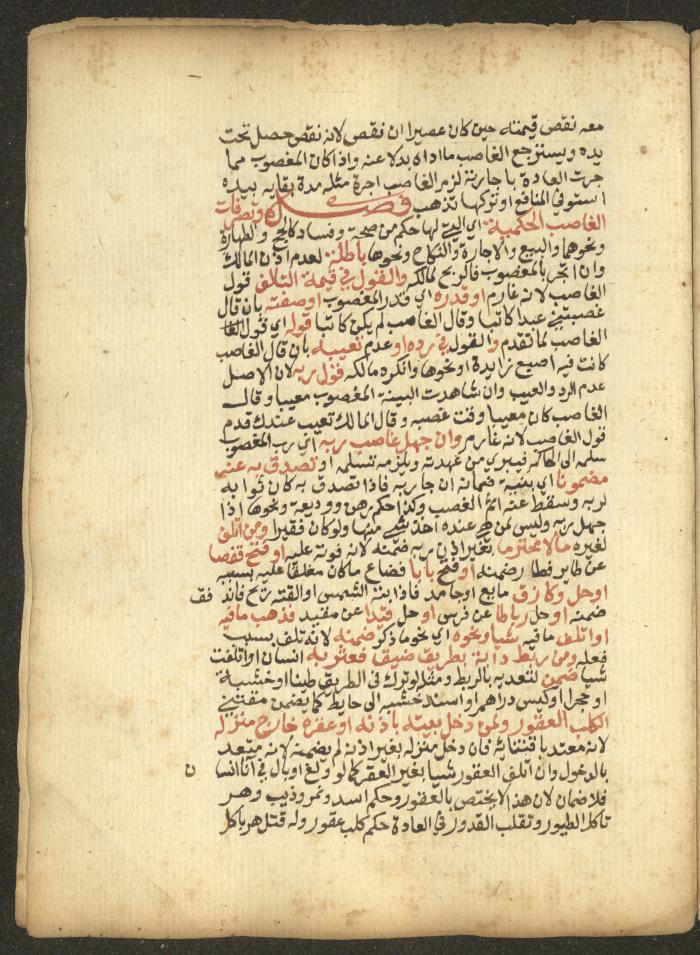 معه نقص قيمته حين كان عصيرا ان نقص لانه نقص حصل تحت
يده ويسترجع الغاصب ما اداه بدلا عنه واذا كان المغصوب مما
جرت العادة باجارته لزم الغاصب اجرة مثله مدة بقايه بيده
استوفى المنافع او تركها تذهب فصل وتصرفات
الغاصب الحكمية اي التي لها حكم من صحة وفساد كالحج والطهارة
ونحوهما والبيع والاجارة والنكاح ونحوها باطلة لعدم اذن المالك
وان اتجر بالمغصوب فالربح لمالكه والقول في قيمة التالف قول
الغاصب لانه غارم او قدره اي قدر المغصوب او صفته بان قال
غصبتني عبدا كاتبا وقال الغاصب لم يكن كاتبا قوله اي قول الغا
الغاصب لما تقدم والقول في رده او عدم تعييبه بان قال الغاصب
كانت فيه اصبع زايدة او نحوها وانكره مالكه قول ربه لان الاصل
عدم الرد والعيب وان شاهدت البينة المغصوب معيبا وقال
الغاصب كان معيبا وقت غصبه وقال المالك تعيب عندك قدم
قول الغاصب لانه غارم وان جهل غاصب ربه اي رب المغصوب
سلمه الى الحاكم فيبرى من عهدته ويلزمه تسلمه او تصدق به عنه
مضمونا اي بنية ضمانه ان جا ربه فاذا تصدق به كان ثوابه
لربه وسقط عنه اثم الغصب وكذا حكم رهن ووديعة ونحوها اذا
جهل ربه وليس لمن هي عنده اخذ شي منها ولو كان فقيرا ومن اتلف
لغيره مالا محترما بغير اذن ربه ضمنه لانه فوته عليه او فتح قفصا
عن طاير فطار ضمنه او فتح بابا فضاع ما كان مغلقا عليه بسببه
او حل وكا زق مايع او جامد فاذابته الشمس او القته ريح فاند فق
ضمنه او حل رباطا عن فرس او حل قيدا عن مقيد فذهب ما فيه
او اتلف ما فيه شيا ونحوه اي نحو ما ذكر ضمنه لانه تلف بسبب
فعله ومن ربط دابة بطريق ضيق فعثر به انسان او اتلفت
شيا ضمن لتعديه بالربط ومثله لو ترك في الطريق طينا او خشبة
او حجرا او كيس دراهم او اسند خشبه الى حايط كما يضمن مقتني
الكلب العقور ولمن دخل بيته باذنه او عقره خارج منزله
لانه معتد باقتنائه فان دخل منزله بغير اذنه لم يضمنه لانه متعد
بالدخول وان اتلف العقور شيا بغير العقر كما لو ولغ او بال في انا انسا ن
فلا ضمان لان هذا لا يختص بالعقور وحكم اسد ونمر وذيب وهر
تاكل الطيور وتقلب القدور في العادة حكم كلب عقور وله قتل هر باكل